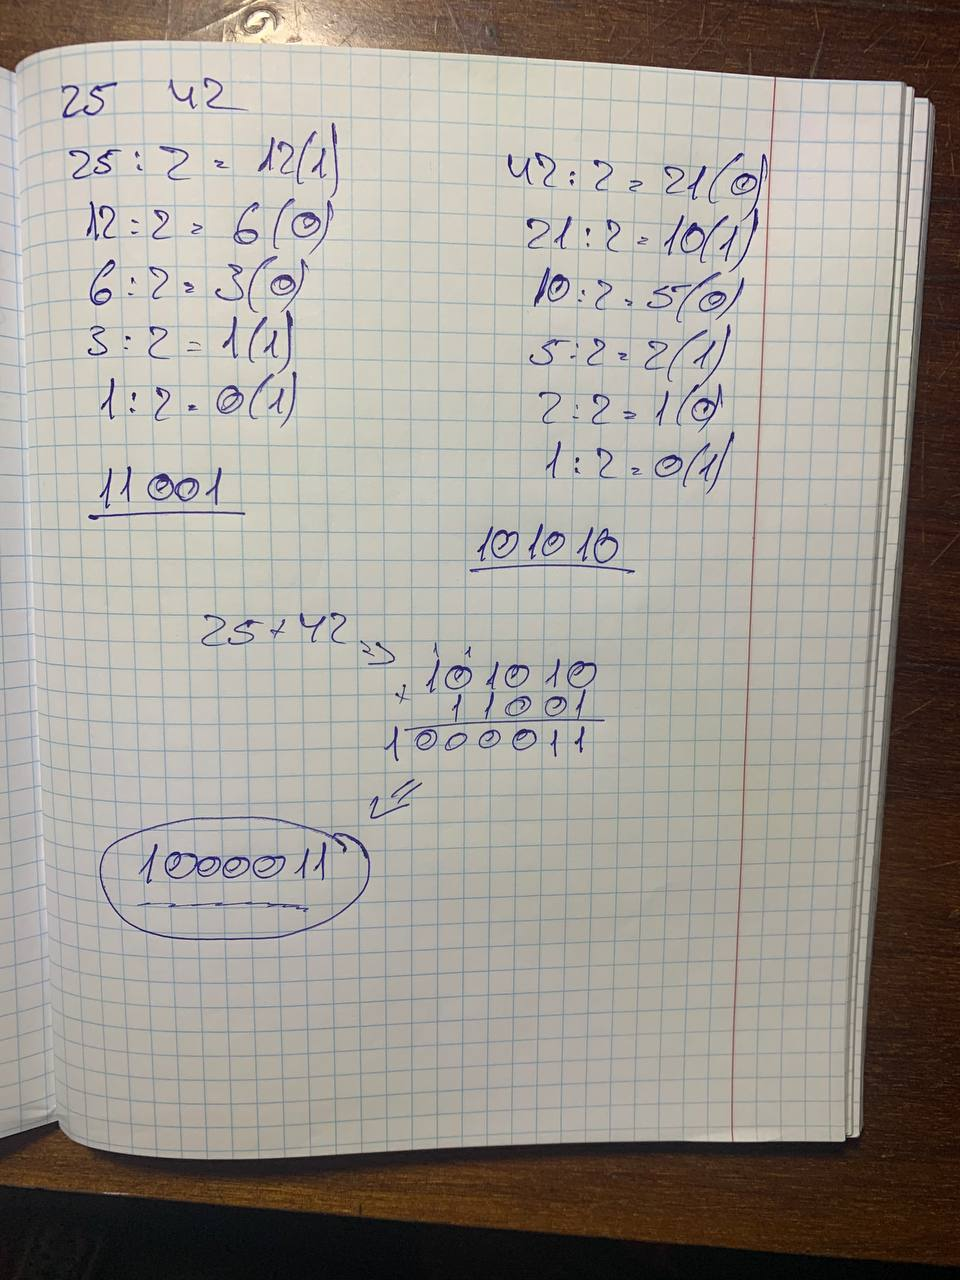 25 42
25 : 2 = 12(1)
12 : 2 = 6(0)
6 : 2 = 3(0)
3 : 2 = 1(1)
1 : 2 = 0(1)
11001
42 : 2 = 21(0)
21 : 2 = 10(1)
10 : 2 = 5(0)
5 : 2 = 2(1)
2 : 2 = 1(0)
1 : 2 = 0(1)
101010
25 + 42 =>
1 1
101010
+ 11001
1000011
1000011